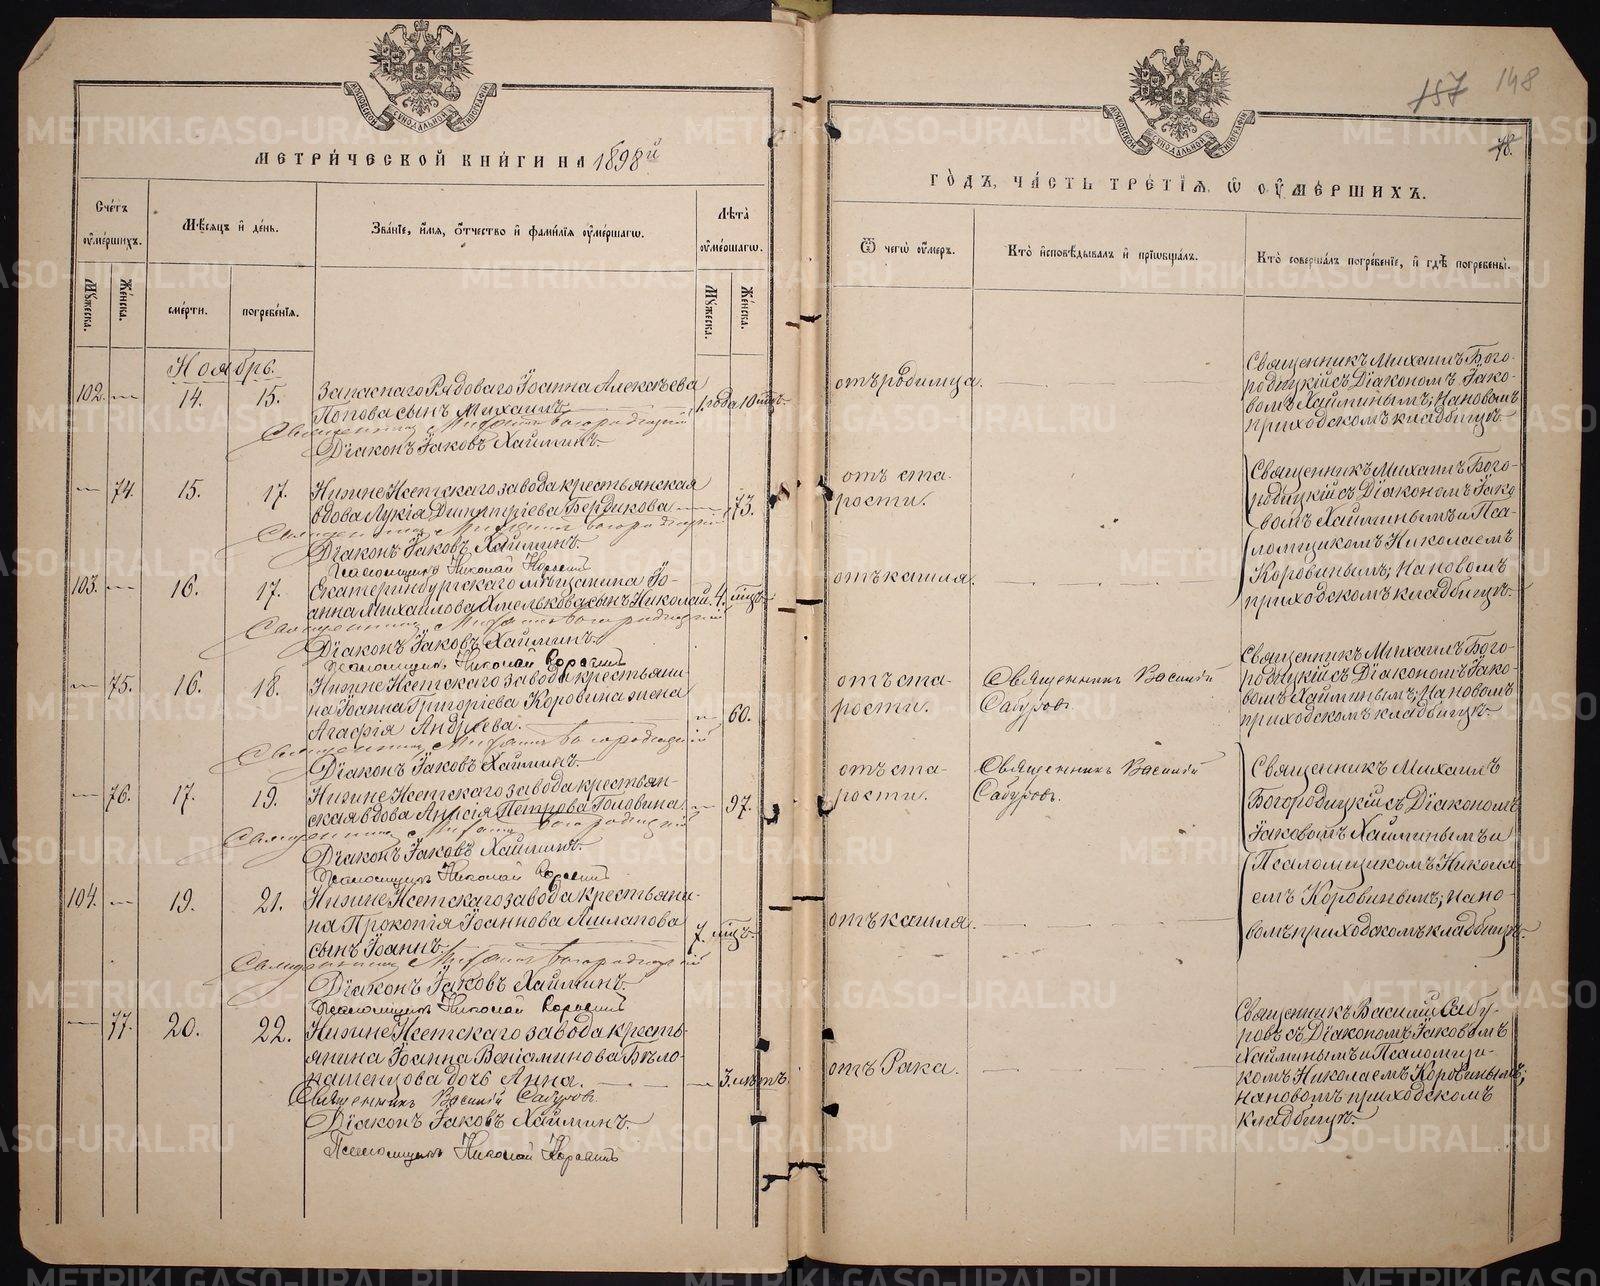 МЕТРИ́ЧЕСКОЙ КНИ́ГИ НА 1898й
Сче́тъ ᲂу҆ме́ршихъ.
Мѣ́сяцъ и҆ де́нь.
Зва́нїе, и҆́мя, ѻ҆́тчество и҆ фами́лїя ᲂу҆ме́ршагѡ.
Лѣта̀ ᲂу҆ме́ршагѡ.
Мꙋ́жеска.
Же́нска.
сме́рти.
погребе́нїя.
Мꙋ́жеска.
Же́нска.
Ноябрь.
102. 14. 15. Запаснаго Рядоваго Іоанна Алексѣева 1 года 10 мцъ.
Попова сынъ Михаилъ.
Священникъ Михаилъ Богородицкій
Діаконъ Іаковъ Хайминъ.
74. 15. 17. Нижне Исетскаго завода крестьянская
вдова Лукія Димитріева Бердикова 73.
Священникъ Михаилъ Богородицкій
Діаконъ Іаковъ Хайминъ.
Псаломщикъ Николай Коровинъ
103. 16. 17. Екатеринбургскаго мѣщанина Іо-
анна Михаилова Хмелькова сынъ Николай. 4. мцъ.
Священникъ Михаилъ Богородицкій
Діаконъ Іаковъ Хайминъ.
Псаломщикъ Николай Коровинъ
75. 16. 18. Нижне Исетскаго завода крестьяни-
на Іоанна Григоріева Коровина жена
Агафія Андреева. 60.
Священникъ Михаилъ Богородицкій
Діаконъ Іаковъ Хайминъ.
76. 17. 19. Нижне Исетскаго завода крестьян-
ская вдова Анисія Петрова Головина 97.
Священникъ Михаилъ Богородицкій
Діаконъ Іаковъ Хайминъ.
Псаломщикъ Николай Коровинъ
104. 19. 21. Нижне Исетскаго завода крестьяни-
на Прокопія Іоаннова Ашлапова 7. мцъ.
сынъ Іоаннъ.
Священникъ Михаилъ Богородицкій
Діаконъ Іаковъ Хайминъ.
Псаломщикъ Николай Коровинъ
77. 20. 22. Нижне Исетскаго завода кресть-
янина Іоанна Веніаминова Бѣло-
пашенцова дочь Анна. 3. лѣтъ.
Священникъ Василій Сабуровъ
Діаконъ Іаковъ Хайминъ.
Псаломщикъ Николай Коровинъ
157 148
78.
ГО́ДЪ, ЧА́СТЬ ТРЕ́ТЇЯ, Ѡ҆ ᲂУ҆МЕ́РШИХЪ.
Ѿ чегѡ̀ ᲂу҆́меръ.
Кто̀ и҆сповѣ́дывалъ и҆ прїѡбща́лъ.
Кто̀ соверша́лъ погребе́нїе, и҆ гдѣ̀ погребены̀.
отъ родимца.
Священникъ Михаилъ Бого-
родицкій съ Діакономъ Іако-
вомъ Хайминымъ; На новомъ
приходскомъ кладбищѣ.
отъ ста-
рости.
Священникъ Михаилъ Бого-
родицкій съ Діакономъ Іако-
вомъ Хайминымъ и Пса-
ломщикомъ Николаемъ
Коровинымъ; На новомъ
приходскомъ кладбищѣ.
отъ кашля.
отъ ста-
рости.
Священникъ Василій
Сабуровъ
Священникъ Михаилъ Бого-
родицкій съ Діакономъ Іако-
вомъ Хайминымъ; На новомъ
приходскомъ кладбищѣ.
отъ ста-
рости.
Священникъ Василій
Сабуровъ.
Священникъ Михаилъ
Богородицкій съ Діакономъ
Іаковомъ Хайминымъ и
Псаломщикомъ Никола
емъ Коровинымъ; На но-
вомъ приходскомъ кладбищѣ.
отъ кашля.
отъ Рака.
Священникъ Василій Сабу-
ровъ съ Діакономъ Іаковомъ
Хайминымъ и Псаломщи-
комъ Николаемъ Коровинымъ;
На новомъ приходскомъ
кладбищѣ.
METRIKI.GASO-URAL.RU